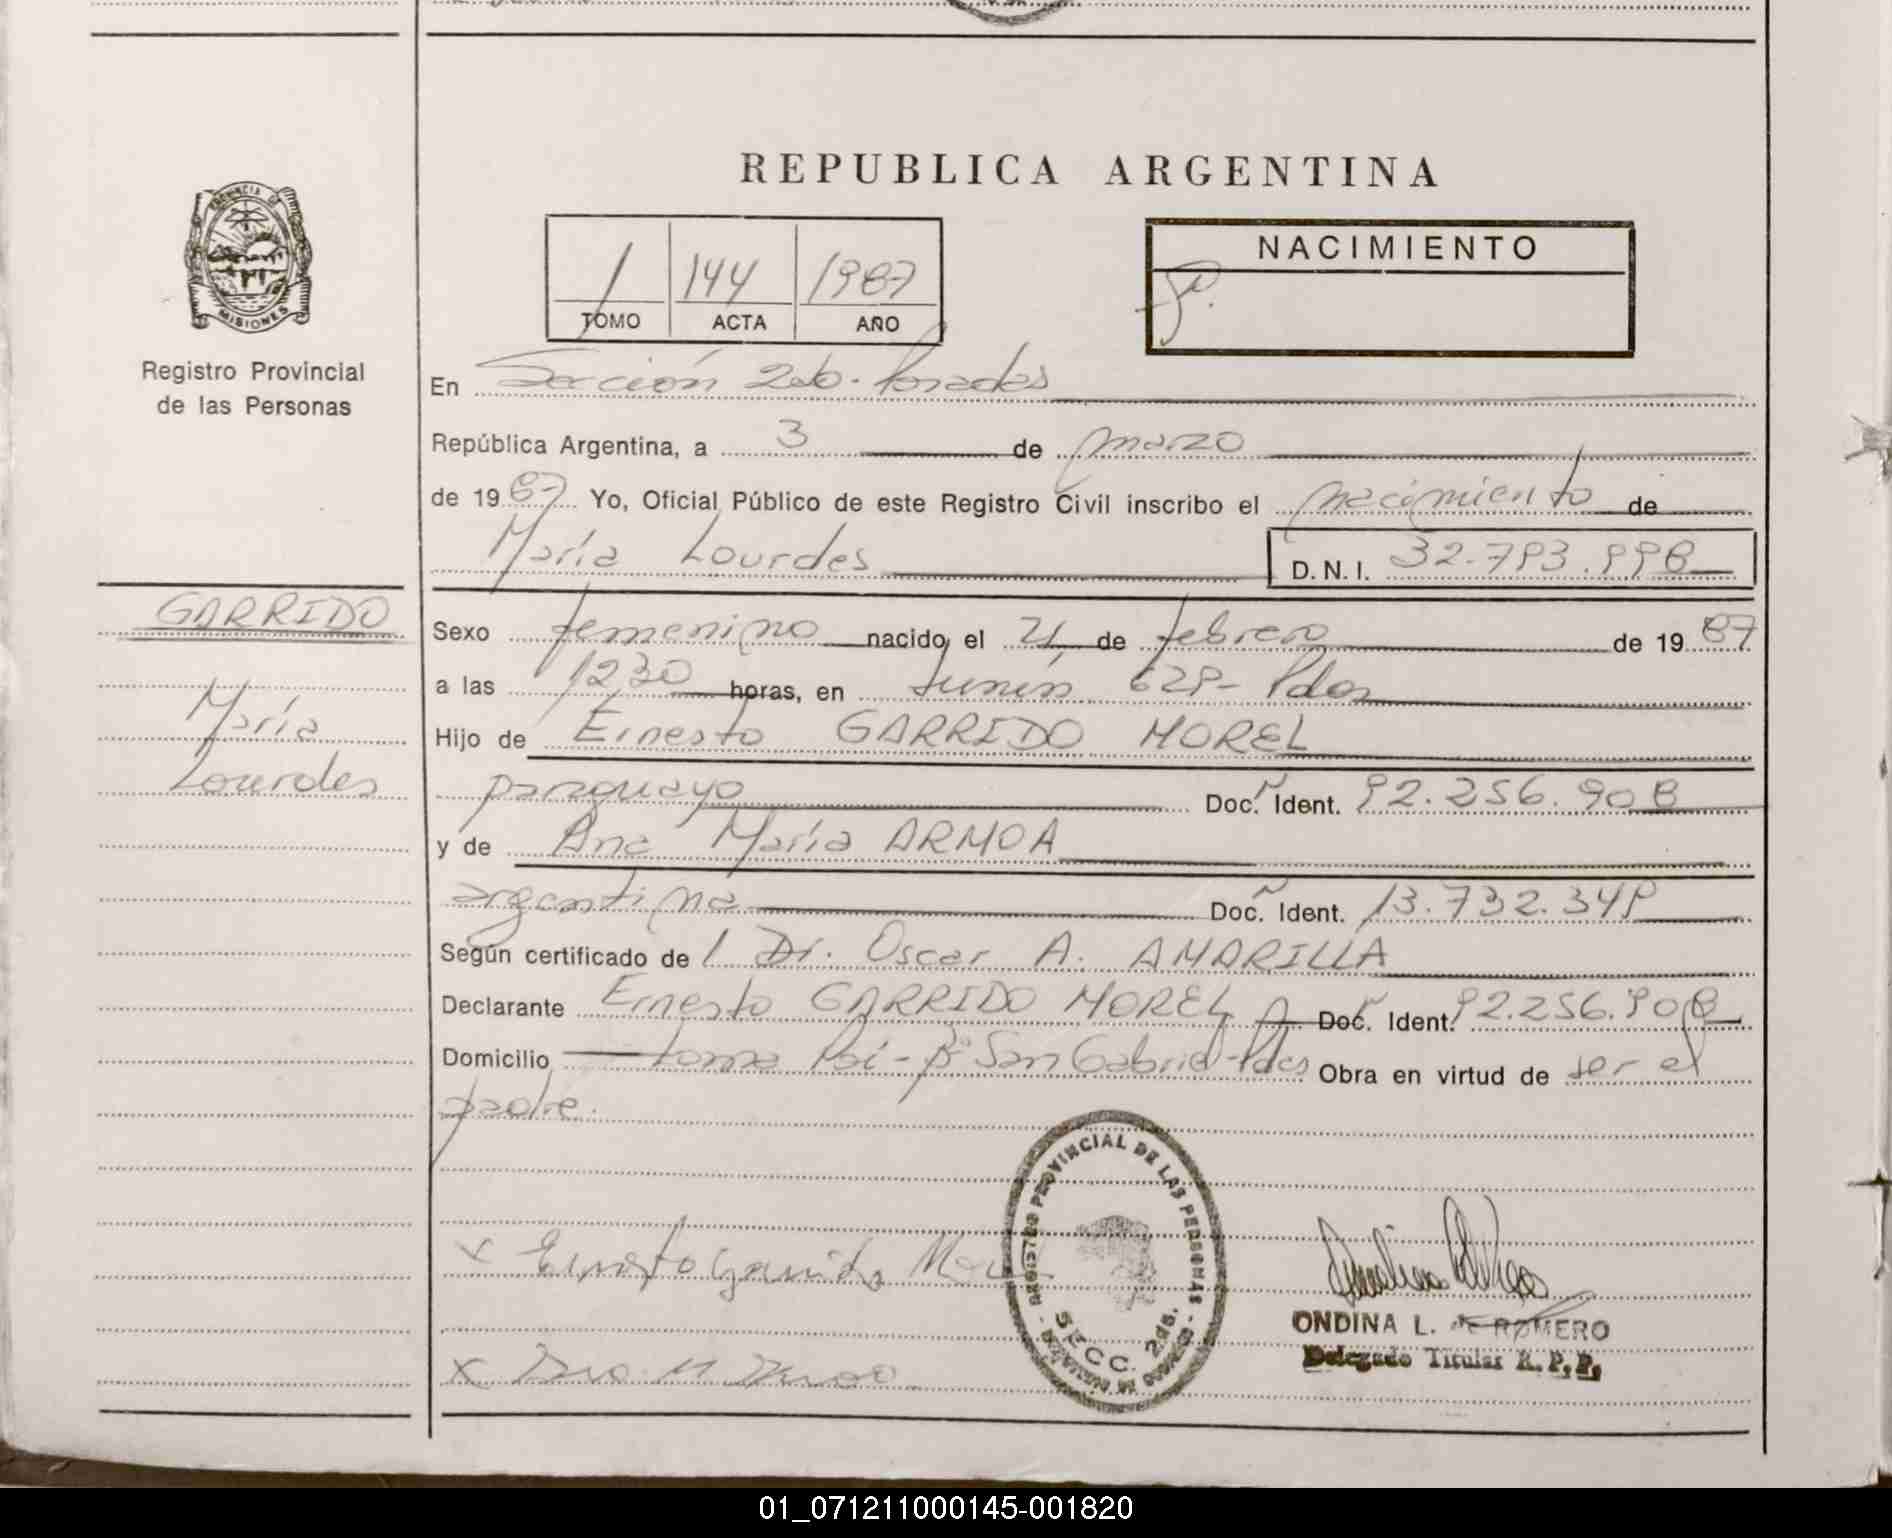 REPUBLICA ARGENTINA
PROVINCIA DE
MISIONES
Registro Provincial
de las Personas
1 144 1987
TOMO ACTA AÑO
NACIMIENTO
En Sección 2da. Posadas
República Argentina, a 3 de marzo
de 1987 Yo, Oficial Público de este Registro Civil inscribo el nacimiento de
María Lourdes D.N.I. 32.793.998
GARRIDO
María
Lourdes
Sexo femenino nacido el 21 de febrero de 1987
a las 1230 horas, en Junín 629- Pdas
Hijo de Ernesto GARRIDO MOREL
paraguayo Doc. Ident. 92.256.908
y de Ana María ARMOA
argentina Doc. Ident. 13.732.349
Según certificado de Dr. Oscar A. AMARILLA
Declarante Ernesto GARRIDO MOREL Doc. Ident. 92.256.908
Domicilio Loma Poí - Bº San Gabriel - Pdas Obra en virtud de ser el
padre.
REGISTRO PROVINCIAL DE LAS PERSONAS
SECC. 2da.
x Ernesto Garrido
x
ONDINA L. de ROMERO
Delegado Titular R. P. P.
01_071211000145-001820